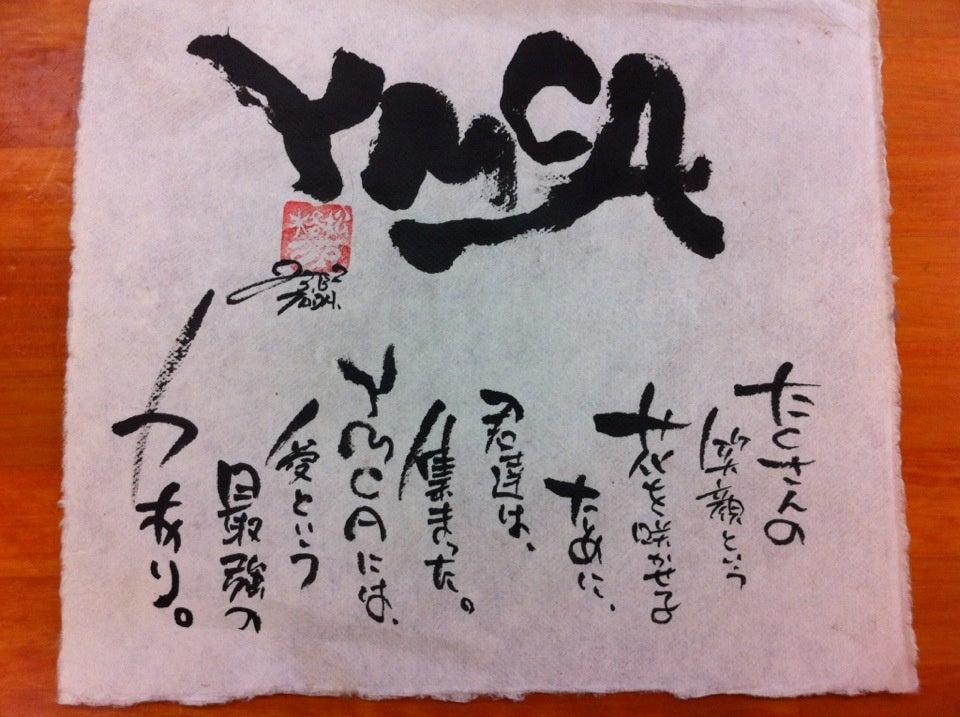 YMCA
たくさんの
笑顔という
花を咲かせる
ために、
君達は、
集まった。
YMCAには、
愛という
最強の
力あり。